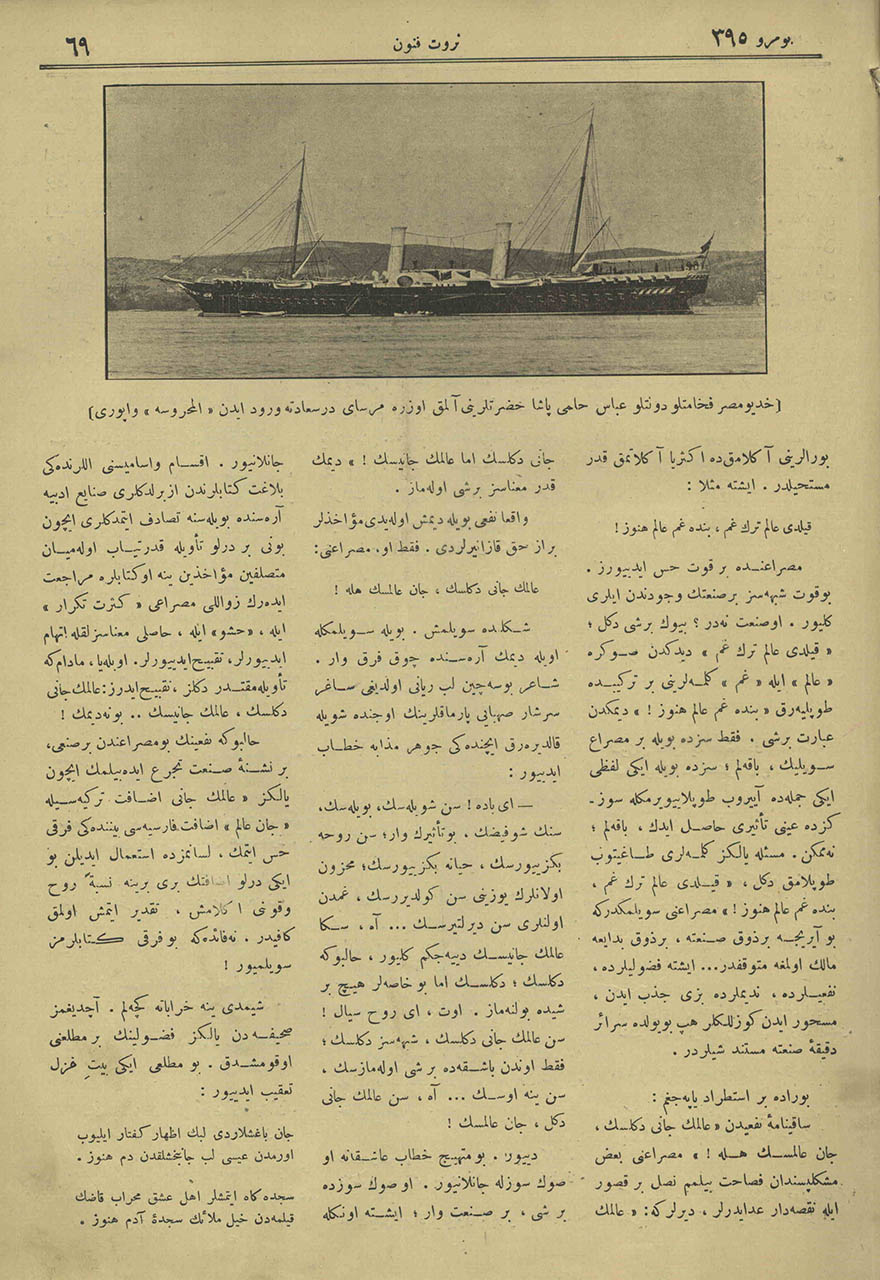 نومرو ٣٩٥
ثروت فنون
٦٩
(خدیو مصر فخامتلو دولتلو عباس حلمی پاشا حضرتلرینی آلمق اوزره مرسای درسعادته ورود ایدن « المحروسه » واپوری)
بورالرینی آ كلامق‌ده اكثریا آ كلاتمق قدر
مستحیلدر . ایشته مثلا :
قیلدی عالم ترك غم ، بنده غم عالم هنوز !
مصراعنـده بر قوت حس ایدییورز .
بو قوت شبهه‌سز بر صنعتك وجودندن ایلری
كلیور . او صنعت نه‌در ؟ بیوك برشی دكل ؛
« قیلدی عالم ترك غم » دیدكدن صـوكره
« عالم » ایله « غم » كلمـه‌لرینی بر تركیبـده
طوپلیه‌رق « بنده غم عالم هنوز ! » دیمكدن
عبارت برشی . فقط سزده بویله بر مصراع
سـویلیك ، باقه‌لم ؛ سزده بویله ایكی لفظی
ایكی جمله‌ده آییروب طوپلاییویرمكله سوز-
كزده عینی تأثیری حاصل ایدك ، باقه‌لم ؛
نه‌ممكن . مسئله یالكز كلمـه‌لری طـاغیتوب
طوپلامق دكل ، « قیـلدی عالم ترك غم ،
بنده غم عالم هنوز ! » مصراعنی سویلمكدركه
بو آیریجـه بر ذوق صنعته ، بر ذوق بدایعه
مالك اولمغه متوقفدر... ایشته فضولیلرده ،
نفعیـلرده ، ندیملرده بزی جذب ایدن ،
مسحور ایدن كوزللكلر هپ بویولده سرائر
دقیقهٔ صنعته مستند شیلر در .
بوراده بر استطراد یاپه‌جغم :
ساقینامهٔ نفعیدن « عالمك جانی دكلسك ،
جان عالمسـك هـله ! » مصراعنی بعض
مشكلپسندان فصاحت بیلمم نصل بر قصور
ایله نقیصه‌دار عد ایدرلر ، دیرلركه : « عالمك
جانی دكلسك اما عالمك جانیسك ! » دیمك
قدر معناسز برشی اوله‌ماز .
واقعا نفعی بویله دیمش اوله‌یدی مؤاخذلر
براز حق قازانیرلردی . فقط او، مصراعنی:
عالمك جانی دكلسك ، جان عالمسك هله !
شـكلـده سویلمش . بویله سـویلمكله
اویله دیمك آره‌سـنده چوق فرق وار .
شـاعر بوسه‌چین لب ریانی اولدیغی ساغر
سرشار صهبایی پارماقلرینك اوجنده شویله
قالدیره‌رق ایچنده‌كی جوهر مذابه خطـاب
ایدییور :
— ای باده ! سن شویله‌سك، بویله‌سك،
سنك شو فیضك ، بو تأثیرك وار ؛ سن روحه
بكزییورسك ، حیاته بكزییورسك ؛ محزون
اولانلرك یوزینی سن كولدیررسك ، غمدن
اولنلری سن دیرلتیرسـك ... آه ، سـكا
عالمك جانیسـك دییه‌جكم كلیور ، حالبوكه
دكلسك ؛ دكلسـك اما بو خاصه‌لر هیـچ بر
شیده بولنه‌ماز . اوت ، ای روح سیال !
سن عالمك جانی دكلسك ، شبهه‌سز دكلسك ؛
فقط اوندن باشقه‌ده برشی اوله‌مازسك ،
سن ینه اوسـك ... آه ، سن عالمك جانی
دكل ، جان عالمسك !
دییور . بو متهیج خطاب عاشقـانه او
صوك سوزله جانلانیور . او صوك سوزده
بر شی ، بر صنعت وار ؛ ایشته اونكله
جانلانیور . اقسـام و اسامیسنی اللرنده‌كی
بلاغت كتابلرندن ازبرلدكلری صنایع ادبیه
آره‌سنده بویله‌سنه تصادف ایتمدكلری ایچون
بونی بر درلو تأویله قدرتیـاب اوله‌میـان
متصلفین مؤاخذین ینه او كتابلره مراجعت
ایده‌رك زواللی مصراعی « كثرت تكرار »
ایله ، « حشو » ایله ، حاصلی معناسزلقله اتهام
ایدییورلر، تقبیح ایدییورلر. اویله یا، مادام‌كه
تأویله مقتـدر دكلز ، تقبیـح ایدرز : عالمك جانی
دكلسك ، عالمك جانیسك .. بو نه دیمك !
حالبوكه نفعینك بو مصراعندن بر صنعی،
بر نشـئهٔ صـنعت تجرع ایده‌بیلمك ایچون
یالكز « عالمك جانی اضـافت تركیه‌سـیله
« جان عالم » اضافت فارسیه‌سی بیننده‌كی فرقی
حس ایتمك ، لسـانمزده استعمال ایدیلن بو
ایكی درلو اضافتك بری برینه نسبةً روح
وقوتنی آكلامش ، تقدیر ایتمش اولمق
كافیدر . نه فائده‌كه بو فرقی كـتابلرمز
سویلمیور !
شیمدی ینه خراباته كچه‌لم . آچدیغمز
صحیفـه‌دن یالكز فضـولینك بر مطلعنی
اوقومشـدق . بو مطلعی ایكی بیتِ غزل
تعقیب ایدییور :
جان باغشلاردی لبك اظهار كفتار ایلیوب
اورمدن عیسی لب جانبخشلقدن دم هنوز .
سجده‌كاه ایتمشلر اهل عشق محراب قاشك
قیلمه‌دن خیل ملائك سجدهٔ آدم هنوز .